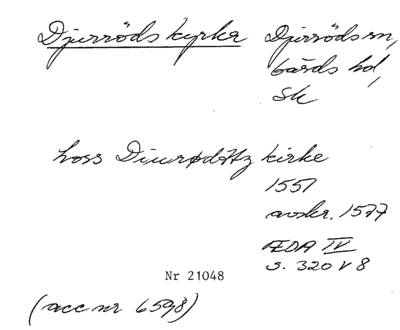 Djurröds kyrka Djurröds sn,
Gärds hd,
Sk
hoss Diurødttz kirke
1551
avskr. 1577
ÆDA IV
s. 320 v 8
Nr 21048
(acc nr 6598)